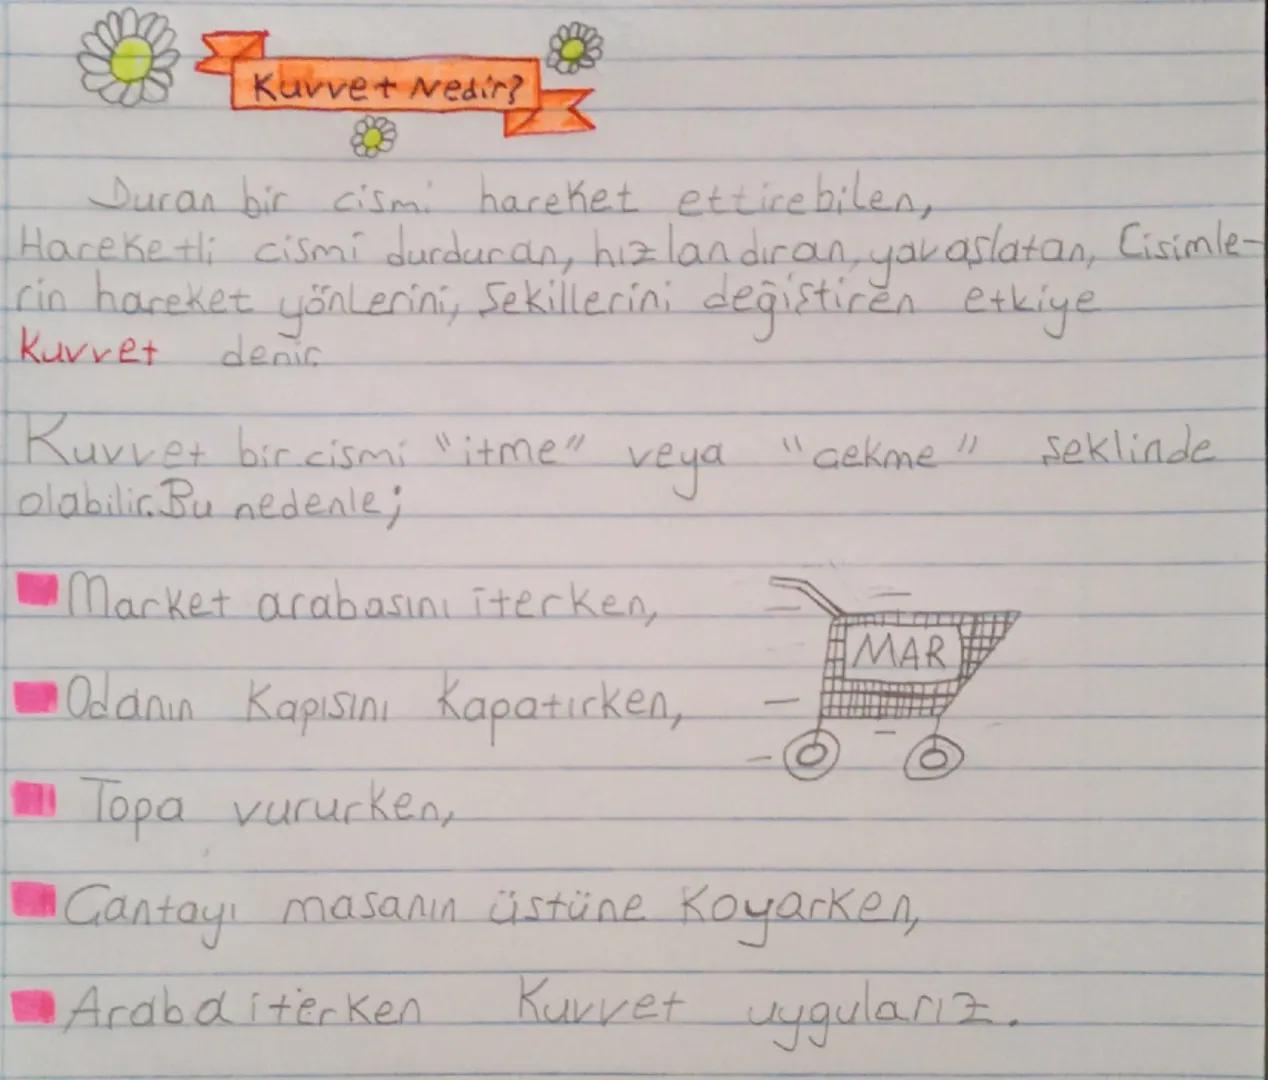 Kuvvet Nedir?
Duran bir cismi hareket ettirebilen,
Hareketli cismi durduran, hızlandıran, yavaşlatan, Cisimle-
rin hareket yönlerini, Şekillerini değiştiren etkiye
Kuvvet denir.
Kuvvet bir cismi "itme" veya "çekme" şeklinde
olabilir. Bu nedenle;
Market arabasını iterken,
Odanın Kapısını Kapatırken,
MAR
Topa vururken,
Çantayı masanın üstüne Koyarken,
Araba iterken Kuvvet uygularız.